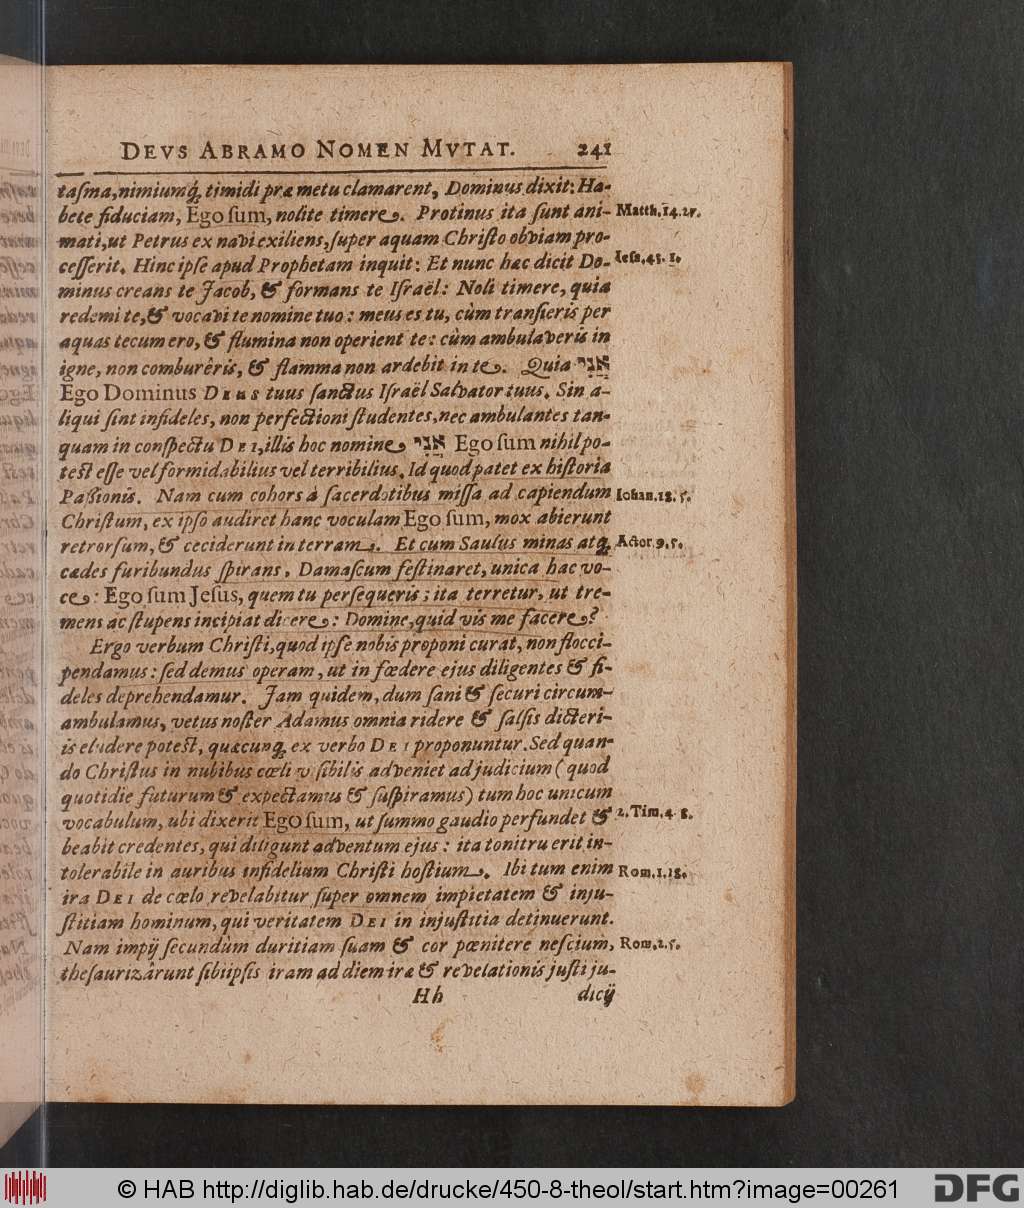 DEVS ABRAMO NOMEN MVTAT. 241
tasma, nimiumq́; timidi præ metu clamarent, Dominus dixit: Ha-
bete fiduciam, Ego sum, nolite timere. Protinus ita sunt ani- Matth. 14. 27.
mati, ut Petrus ex navi exiliens, super aquam Christo obviam pro-
cesserit. Hinc ipse apud Prophetam inquit: Et nunc hæc dicit Do- Iesa. 43. 1.
minus creans te Jacob, & formans te Israël: Noli timere, quia
redemi te, & vocavi te nomine tuo: meus es tu, cùm transieris per
aquas tecum ero, & flumina non operient te: cùm ambulaveris in
igne, non comburêris, & flamma non ardebit in te. Quia אֲנִי
Ego Dominus DEUS tuus sanctus Israël Salvator tuus. Sin a-
liqui sint infideles, non perfectioni studentes, nec ambulantes tan-
quam in conspectu DEI, illis hoc nomine אֲנִי Ego sum nihil po-
test esse vel formidabilius vel terribilius. Id quod patet ex historia
Passionis. Nam cum cohors à sacerdotibus missa ad capiendum Iohan. 18. 5.
Christum, ex ipso audiret hanc voculam Ego sum, mox abierunt
retrorsum, & ceciderunt in terram. Et cum Saulus minas atq́; Actor. 9. 5.
cædes furibundus spirans, Damascum festinaret, unica hac vo-
ce: Ego sum Jesus, quem tu persequeris; ita terretur, ut tre-
mens ac stupens incipiat dicere: Domine, quid vis me facere?
Ergo verbum Christi, quod ipse nobis proponi curat, non flocci-
pendamus: sed demus operam, ut in fœdere ejus diligentes & fi-
deles deprehendamur. Jam quidem, dum sani & securi circum-
ambulamus, vetus noster Adamus omnia ridere & salsis dicteri-
is eludere potest, quæcunq́; ex verbo DEI proponuntur. Sed quan-
do Christus in nubibus cœli visibilis adveniet ad judicium (quod
quotidie futurum & expectamus & suspiramus) tum hoc unicum
vocabulum, ubi dixerit Ego sum, ut summo gaudio perfundet & 2. Tim. 4. 8.
beabit credentes, qui diligunt adventum ejus: ita tonitru erit in-
tolerabile in auribus infidelium Christi hostium. Ibi tum enim Rom. 1. 18.
ira DEI de cœlo revelabitur super omnem impietatem & inju-
stitiam hominum, qui veritatem DEI in injustitia detinuerunt.
Nam impij secundum duritiam suam & cor pœnitere nescium, Rom. 2. 5.
thesaurizârunt sibiipsis iram ad diem iræ & revelationis justi ju-
Hh dicij
© HAB http://diglib.hab.de/drucke/450-8-theol/start.htm?image=00261
DFG